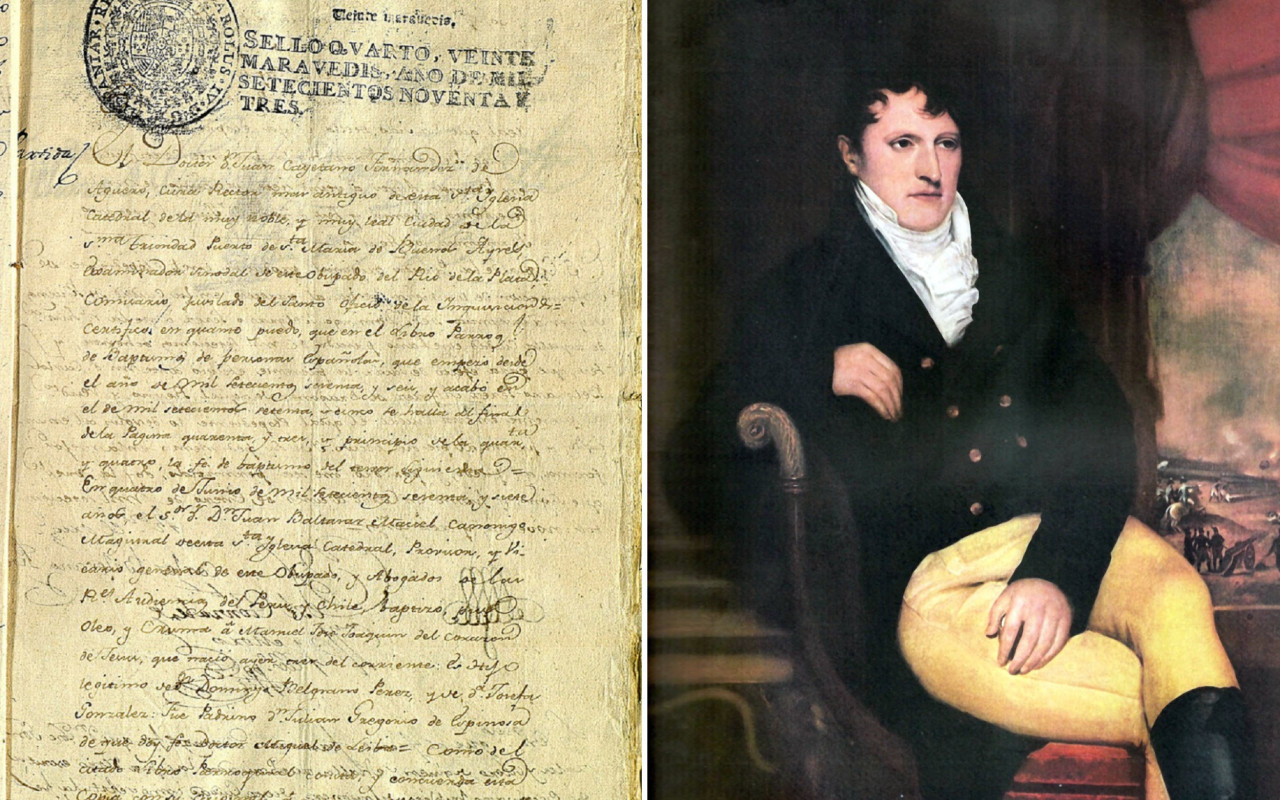 Veinte maravedis.
SELLO QVARTO, VEINTE
MARAVEDIS, AÑO DE MIL
SETECIENTOS NOVENTA Y
TRES.
CAROLUS IV
Partida
Doctor dn Juan Cayetano Fernandez de
Aguero, cura Rector mas antiguo de esta Sta Yglesia
Catedral de la muy noble, y muy leal Ciudad de la
Sma Trinidad Puerto de Sta Maria de Buenos Ayres
Examinador Sinodal de este Obispado del Rio de la Plata
Comisario, juvilado del Santo Oficio de la Inquisicion &=
Certifico, en quanto puedo, que en el Libro Parroq
de Baptismos de personas Españolas, que empezo desde
el año de Mil setecientos sesenta, y seis, y acabo en
el de mil setecientos setenta, se halla al final
de la Pagina quarenta y tres, y principio de la quarta
y quatro, la fé de baptismo del tenor siguiente =
En quatro de Junio de mil setecientos setenta, y
años el Sor Dr Juan Baltasar Maciel Canonigo
Magistral de esta Sta Yglesia Catedral, Provisor, y Vi-
cario general de este Obispado, y Abogado de las
Rs Audiencias del Peru, y Chile, baptizo, puso
Oleo, y Crisma á Manuel José Joaquin del corazon
de Jesus, que nacio ayer tres del corriente: Es hijo
legitimo de Dn Domingo Belgrano Perez, y de Da Josefa
Gonzalez: Fue Padrino Dn Julian Gregorio de Espinosa
de que doy fe= Doctor Miguel de = Como del
citado Libro Parroquial consta, y concuerda esta
Copia con su original